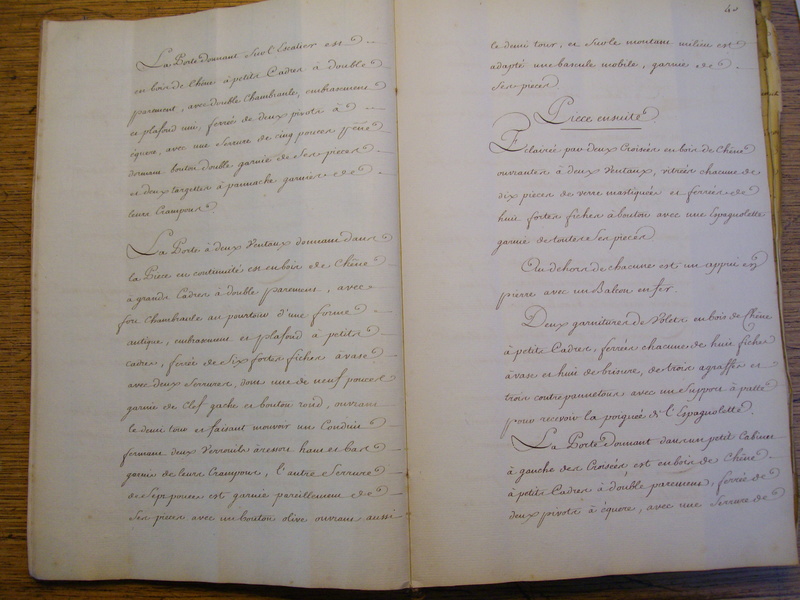 La Porte donnant Sur l'Escalier est
en bois de Chêne à petits Cadres à double
parement, avec double Chambranle, embrasement
et plafond uni, ferrée de deux pivots à
équere, avec une Serrure de cinq pouces pêne
dormant bouton double garnie de Ses pieces
et deux targettes à pannache garnies de
leurs Crampons
La Porte à deux Ventaux donnant dans
la Piece en continuité est en bois de Chêne
à grands Cadres à double parement, avec
fort Chambranle au pourtour d'une forme
antique, embrasement et plafond à petits
cadres, ferrée de Six fortes fiches à vase
avec deux Serrures, dont une de neuf pouces
garnie de Clef gache et bouton rond, ouvrant
le demi tour et faisant mouvoir un
fermant deux Verrouils à resort haut et bas
garnis de leurs Crampons, l'autre Serrure
de Sept pouces est garnie pareillement de
Ses pieces avec un bouton olive ouvrant aussi
le demi tour, et Sur le montant milieu est
adapté une bascule mobile, garnie de
Ses pieces
Piece ensuite
Eclairée par deux Croisées en bois de Chêne
ouvrantes à deux Ventaux, vitrées chacune de
dix pieces de verre mastiquées et ferrées de
huit fortes fiches à bouton avec une Espagnolette
garnie de toutes Ses pieces
Au dehors de chacune est un appui en
pierre avec un Balcon en fer.
Deux garnitures de Volets en bois de Chêne
à petits Cadres, ferrées chacune de huit fiches
à vase et huit de brisure, de trois agraffes et
trois contrepannetons avec un Support à patte
pour recevoir la poignée de l'Espagnolette.
La Porte donnant dans un petit Cabinet
à gauche des Croisées est en bois de Chêne
à petits Cadres à double parement, ferrée de
deux pivots à équere, avec une Serrure de